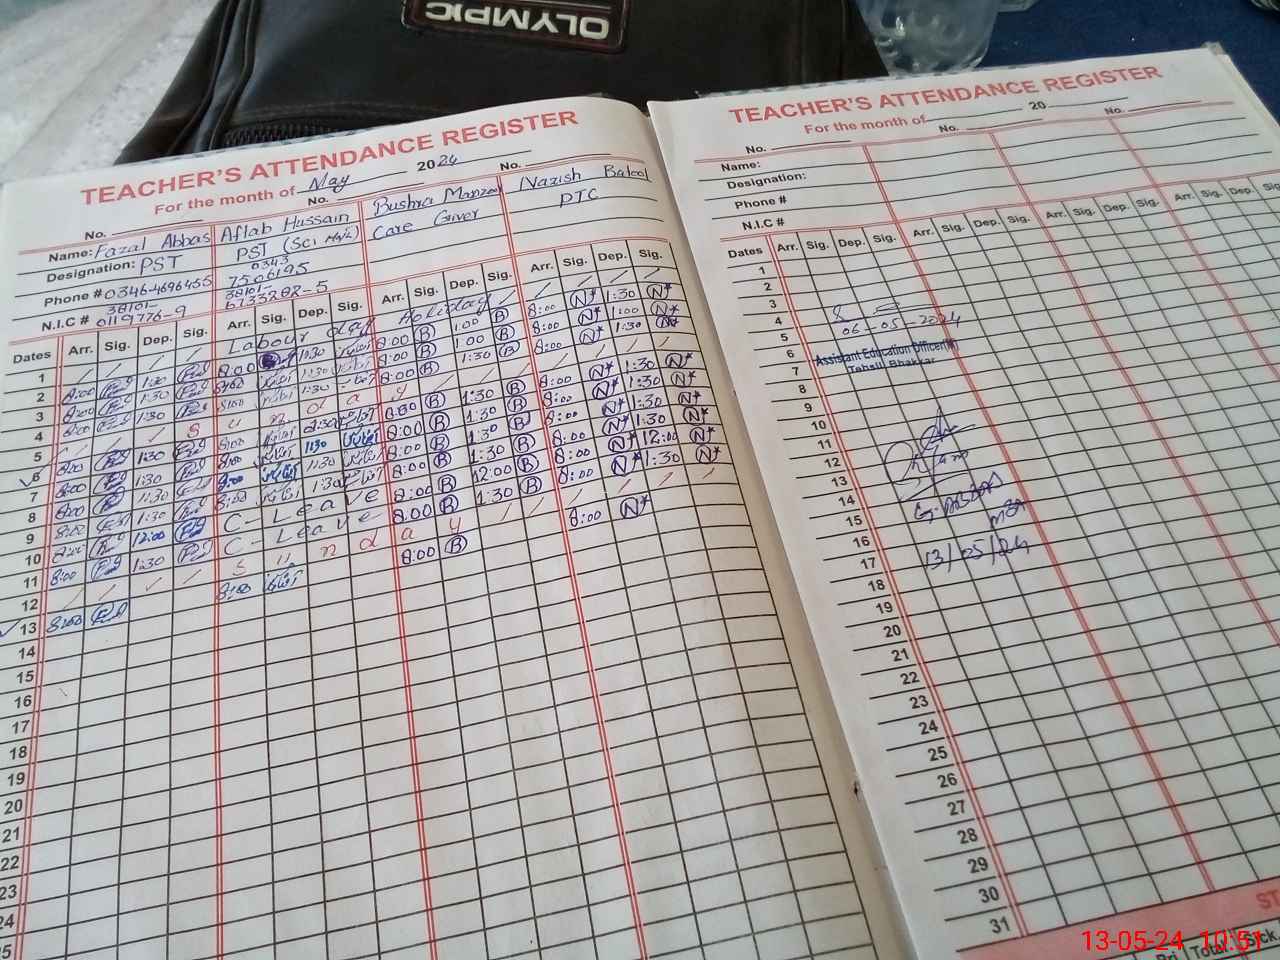 OLYMPIC
TEACHER'S ATTENDANCE REGISTER
For the month of May 2024
No. No. No.
Name: Fazal Abbas Aftab Hussain Bushra Manzoor Nazish Batool
Designation: PST PST (Sci Math) Care Giver PTC
Phone # 0346-4696455 0343 7506195
N.I.C # 38101-0119776-9 38101-
Dates Arr. Sig. Dep. Sig. Arr. Sig. Dep. Sig. Arr. Sig. Dep. Sig. Arr. Sig. Dep. Sig.
1 Labour day Holiday
2 8:00 1:30 8:00 1:30 8:00 B 1:00 B 8:00 N* 1:30 N*
3 8:00 1:30 8:00 1:30 8:00 B 1:00 B 8:00 N* 1:00 N*
4 8:00 1:30 8:00 1:30 8:00 B 1:30 B 8:00 N* 1:30 N*
5 Sunday
6 8:00 1:30 8:00 8:00 B 1:30 B 8:00 N* 1:30 N*
7 8:00 1:30 8:00 1:30 8:00 B 1:30 B 8:00 N* 1:30 N*
8 8:00 1:30 8:00 1:30 8:00 B 1:30 B 8:00 N* 1:30 N*
9 8:00 1:30 8:00 1:30 8:00 B 1:30 B 8:00 N* 1:30 N*
10 8:00 12:00 C-Leave 8:00 B 12:00 B 8:00 N* 12:00 N*
11 8:00 1:30 C-Leave 8:00 B 1:30 B 8:00 N* 1:30 N*
12 Sunday
13 8:00 8:00 8:00 B 8:00 N*
14
15
16
17
18
19
20
21
22
23
24
25
TEACHER'S ATTENDANCE REGISTER
For the month of 20
No. No. No.
Name:
Designation:
Phone #
N.I.C #
Dates Arr. Sig. Dep. Sig. Arr. Sig. Dep. Sig. Arr. Sig. Dep. Sig.
1
2
3
4
5
6
7
8
9
10
11
12
13
14
15
16
17
18
19
20
21
22
23
24
25
26
27
28
29
30
31
06-05-2024
Assistant Education Officer(M)
Tehsil Bhakkar
13/05/24
ST
Pri Total Sick
13-05-24 10:51